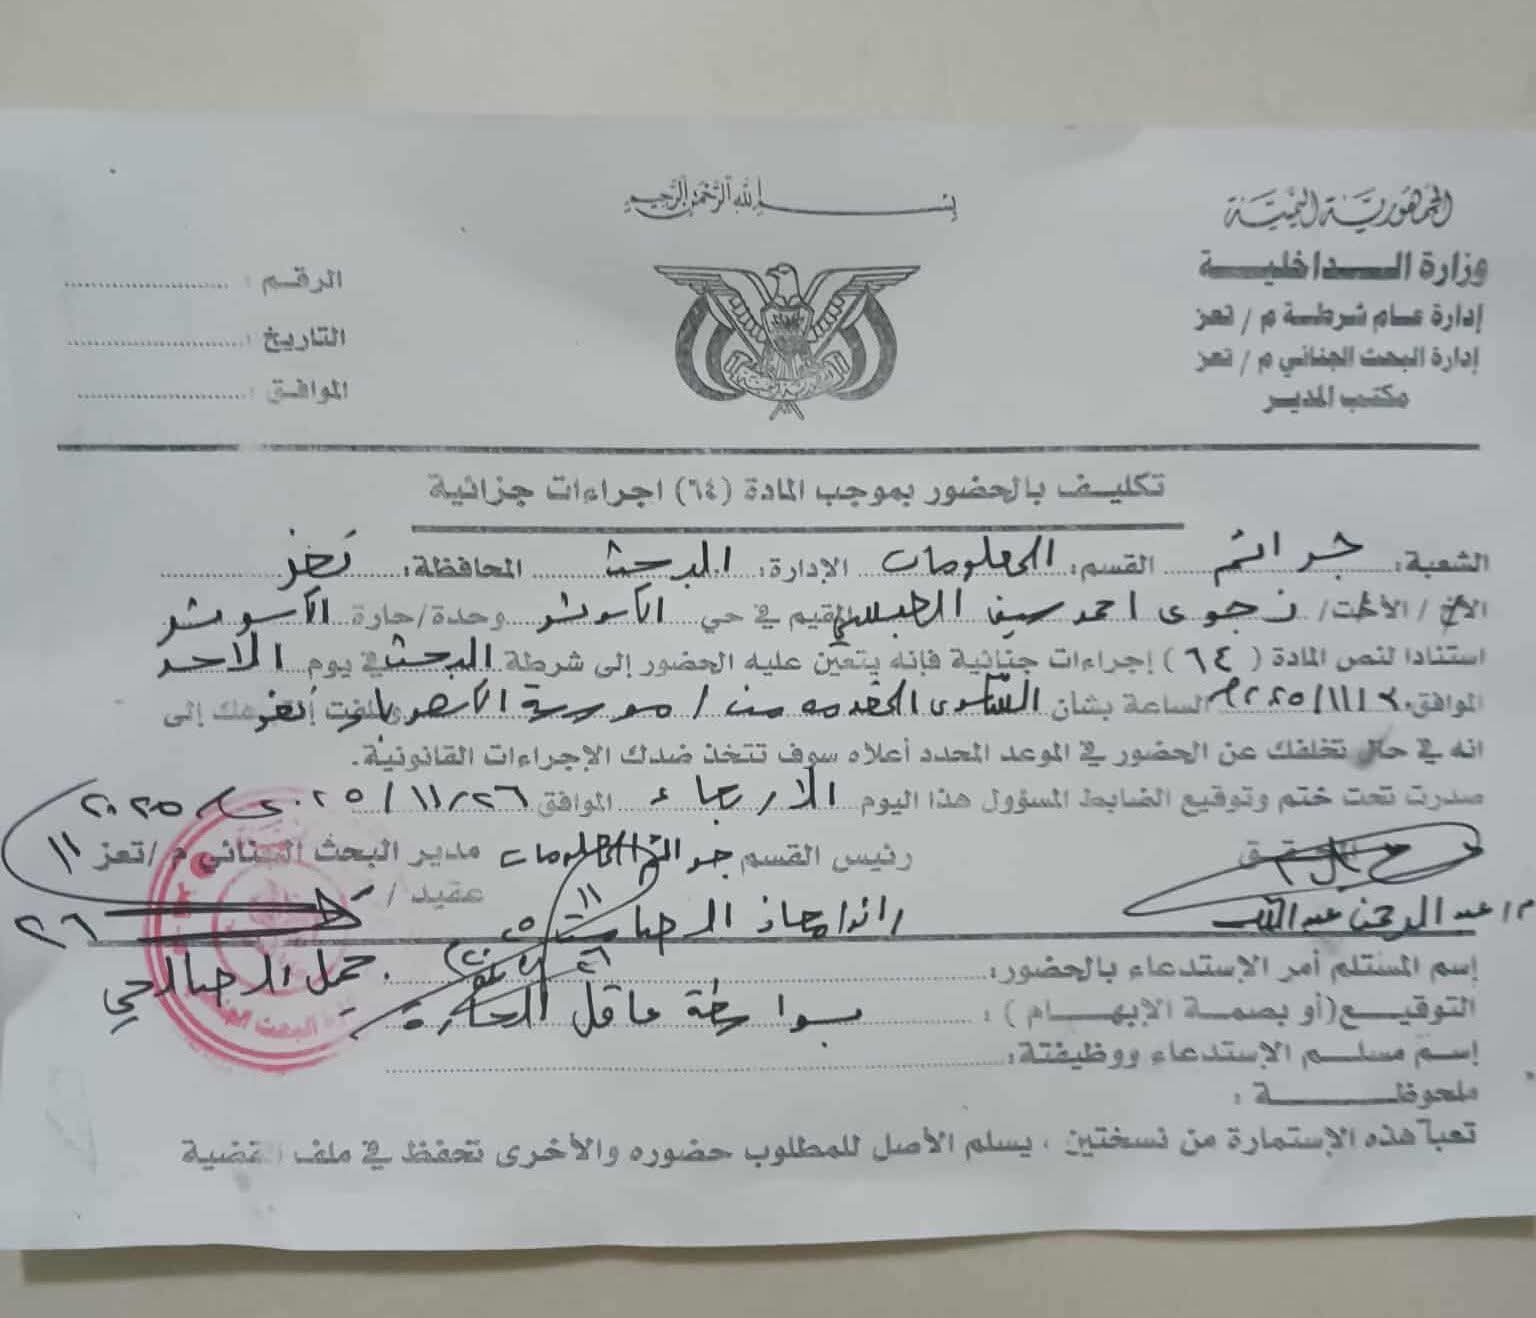 بسم الله الرحمن الرحيم
الجمهورية اليمنية
وزارة الداخلية
إدارة عام شرطة م / تعز
إدارة البحث الجنائي م / تعز
مكتب المدير
الرقم :
التاريخ :
الموافق :
تكليف بالحضور بموجب المادة (٦٤) اجراءات جزائية
الشعبة: جرائم القسم: المعلومات الإدارة: البحث المحافظة: تعز
الأخ / الأخت/ نجوى احمد سيف المقيم في حي الكاسوشر وحدة/حارة
استنادا لنص المادة (٦٤) إجراءات جنائية فإنه يتعين عليه الحضور إلى شرطة البحث في يوم الاحد
الموافق: ٢٠٢٥/١١/٣٠م الساعة بشأن الشكوى المقدمه من / تعز إلى
انه في حال تخلفك عن الحضور في الموعد المحدد أعلاه سوف تتخذ ضدك الإجراءات القانونية.
صدرت تحت ختم وتوقيع الضابط المسؤول هذا اليوم الاربعاء الموافق ٢٠٢٥/١١/٢٦
المحقق رئيس القسم جرائم المعلومات مدير البحث الجنائي م /تعز
عقيد /
م/ عبد الرحمن عبدالملك رائد/
إسم المستلم أمر الإستدعاء بالحضور:
التوقيع(أو بصمة الإبهام ) : بواسطة عاقل الحارة
إسم مسلم الإستدعاء ووظيفتة:
ملحوظة :
تعبأ هذه الإستمارة من نسختين ، يسلم الأصل للمطلوب حضوره والأخرى تحفظ في ملف القضية